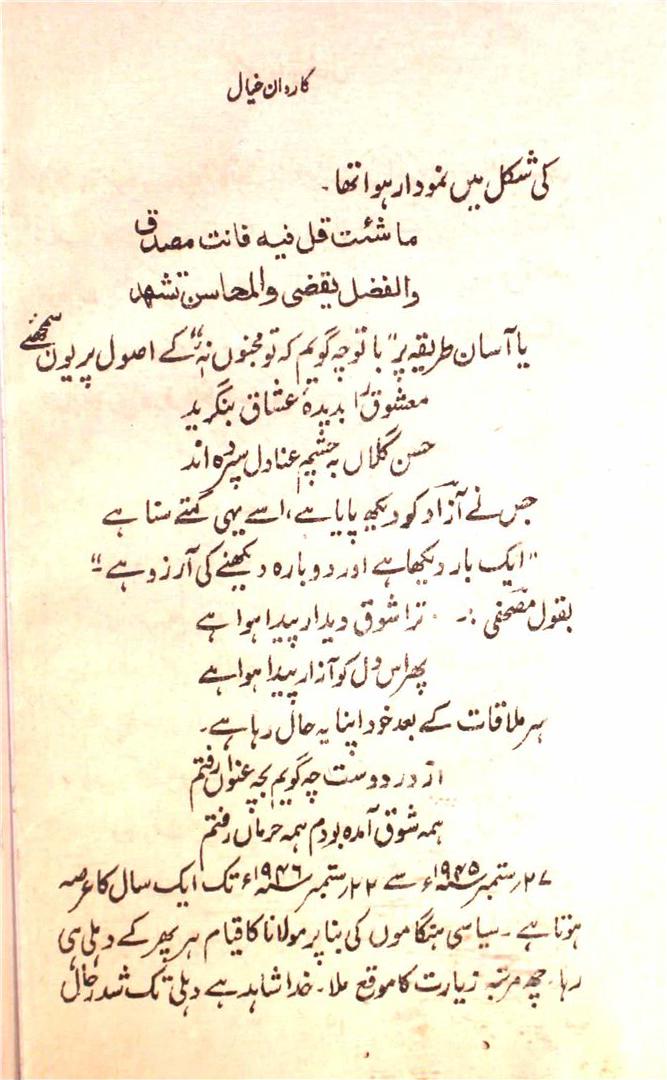 کاروان خیال
کی شکل میں نمودار ہوا تھا۔
ما شئت قل فیه فانت مصدق
والفضل یقضی والمحاسن تشهد
یا آسان طریقہ پر "با تو چہ گویم کہ تو مجنوں نۂ" کے اصول پر یوں سمجھئے
معشوق را بدیدۂ عشاق بنگرید
حسن گلاں بہ چشم عنادل سپردہ اند
جس نے آزاد کو دیکھ پایا ہے، اسے یہی کہتے سنا ہے
"ایک بار دیکھا ہے اور دوبارہ دیکھنے کی آرزو ہے۔"
بقول مصحفی :۔ ترا شوق دیدار پیدا ہوا ہے
پھر اس دل کو آزار پیدا ہوا ہے
ہر ملاقات کے بعد خود اپنا یہ حال رہا ہے۔
از در دوست چہ گویم بچہ عنواں رفتم
ہمہ شوق آمدہ بودم ہمہ حرماں رفتم
۲۷ ستمبر ۱۹۴۵ء سے ۲۲ ستمبر ۱۹۴۶ء تک ایک سال کا عرصہ
ہوتا ہے۔ سیاسی ہنگاموں کی بنا پر مولانا کا قیام ہر پھر کے دہلی ہی
رہا۔ چھ مرتبہ زیارت کا موقع ملا۔ خدا شاہد ہے دہلی تک شد رحال